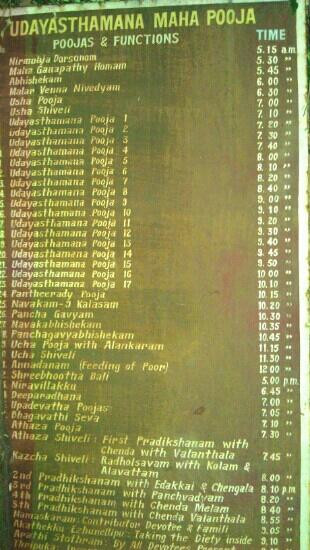 UDAYASTHAMANA MAHA POOJA
POOJAS & FUNCTIONS TIME
Nirmalya Darsanam 5.15 a.m
Maha Ganapathy Homam 5.30 "
Abhishekam 5.45 "
Malar Venna Nivedyam 6.00 "
Usha Pooja 6.30 "
Usha Shiveli 7.00 "
Udayasthamana Pooja 1 7.10 "
Udayasthamana Pooja 2 7.20 "
Udayasthamana Pooja 3 7.30 "
Udayasthamana Pooja 4 7.40 "
Udayasthamana Pooja 5 8.00 "
Udayasthamana Pooja 6 8.10 "
Udayasthamana Pooja 7 8.20 "
Udayasthamana Pooja 8 8.40 "
Udayasthamana Pooja 9 9.00 "
Udayasthamana Pooja 10 9.10 "
Udayasthamana Pooja 11 9.20 "
Udayasthamana Pooja 12 9.30 "
Udayasthamana Pooja 13 9.40 "
Udayasthamana Pooja 14 9.45 "
Udayasthamana Pooja 15 9.50 "
Udayasthamana Pooja 16 10.00 "
Udayasthamana Pooja 17 10.10 "
Pantheerady Pooja 10.15 "
Navakam-3 Kalasam 10.20 "
Pancha Gavyam 10.30 "
Navakabhishekam 10.35 "
Panchagavyabhishekam 10.45 "
Ucha Pooja with Alankaram 11.15 "
Ucha Shiveli 11.30 "
Annadanam (Feeding of Poor) 12.00 "
Shreebhootha Bali 5.00 p.m.
Niravillakku 6.45 "
Deeparadhana 7.00 "
Upadevatha Poojas 7.05 "
Bhagavathi Seva 7.10 "
Athaza Pooja 7.30 "
Athaza Shiveli : First Pradikshanam with
Chenda with Valanthala 7.45 "
Kazcha Shiveli : Radholsavam with Kolam &
Alavattam 8.00 "
2nd Pradikshanam with Edakkai & Chengala 8.10 p.m
3rd Pradikshanam with Panchvadyam 8.20 "
4th Pradikshanam with Chenda Melam 8.40 "
5th Pradikshanam with Chenda Valanthala 8.55 "
Namaskaram: Contributor Devotee & family 3.05 "
Akathekku Ezhunellipu: Taking the Diety inside 9.10 "
Arati Stothram: By All Devotees